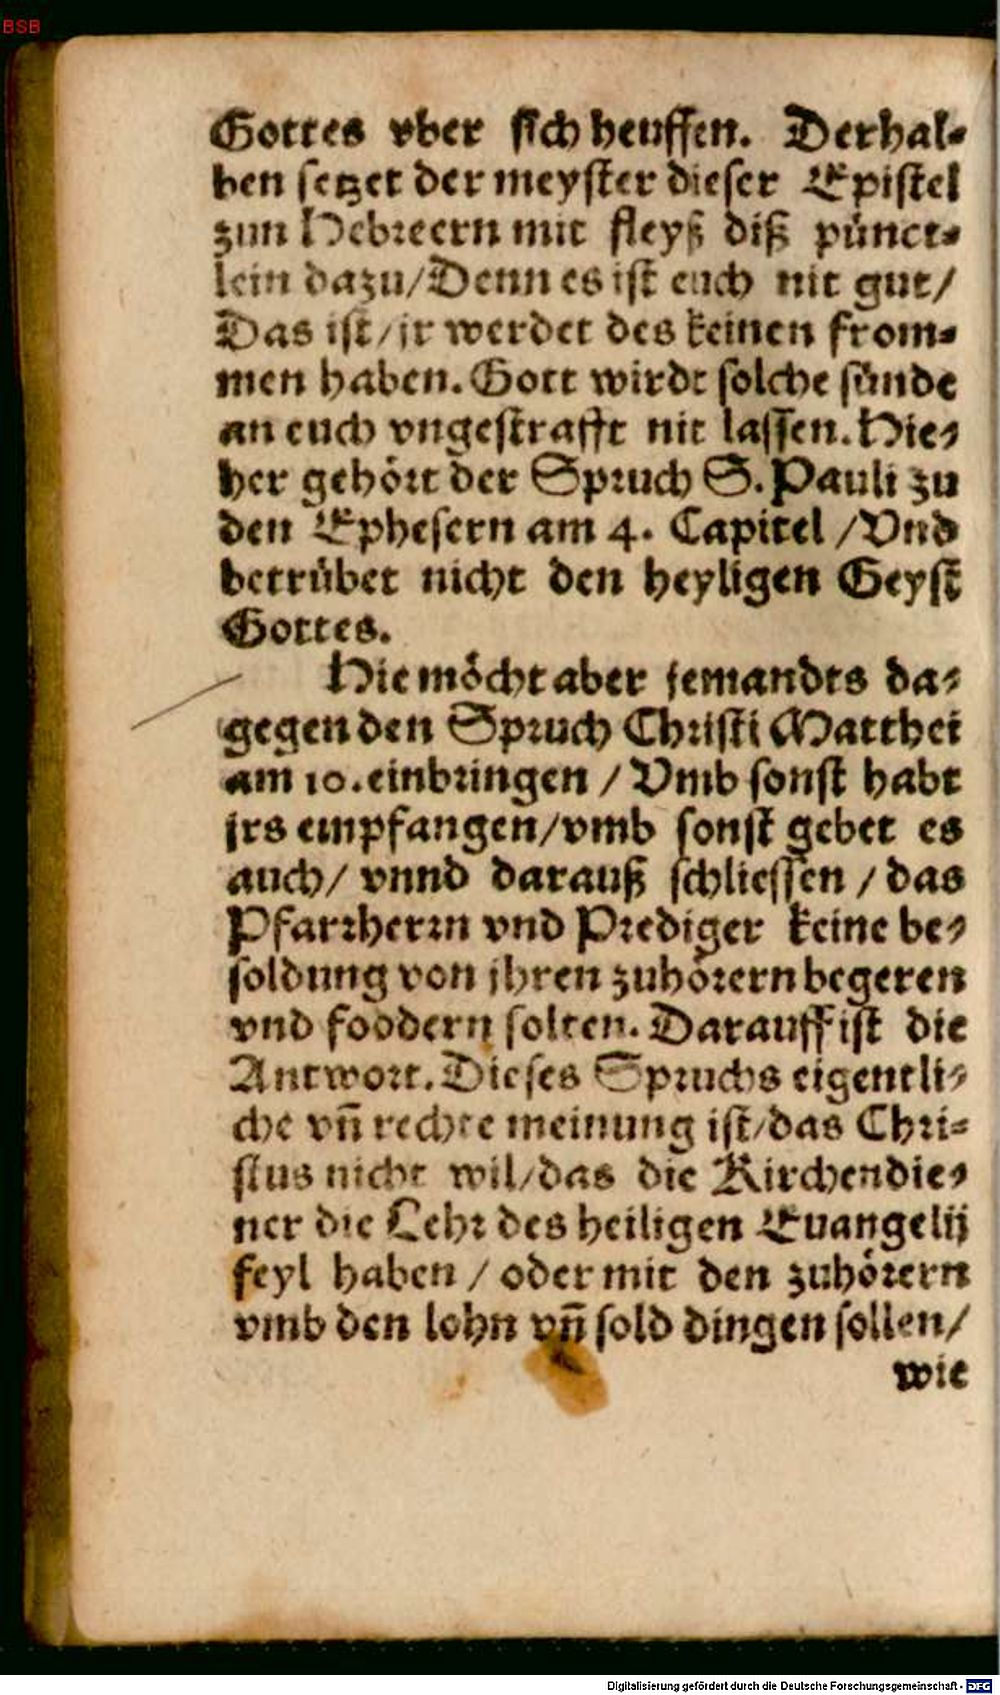 BSB
Gottes vber sich heuffen. Derhal-
ben setzet der meyster dieser Epistel
zun Hebreern mit fleyß diß pünct-
lein dazu/Denn es ist euch nit gut/
Das ist/jr werdet des keinen from-
men haben. Gott wirdt solche sünde
an euch vngestrafft nit lassen. Hie-
her gehört der Spruch S. Pauli zu
den Ephesern am 4. Capitel /Vnd
betrübet nicht den heyligen Geyst
Gottes.
Hie möcht aber jemandts da-
gegen den Spruch Christi Matthei
am 10. einbringen / Vmb sonst habt
jrs empfangen/vmb sonst gebet es
auch/ vnnd darauß schliessen / das
Pfarrherrn vnd Prediger keine be-
soldung von jhren zuhörern begeren
vnd foodern solten. Darauff ist die
Antwort. Dieses Spruchs eigentli-
che vn̄ rechte meinung ist/das Chri-
stus nicht wil/das die Kirchendie-
ner die Lehr des heiligen Euangelij
feyl haben / oder mit den zuhörern
vmb den lohn vn̄ sold dingen sollen/
wie
Digitalisierung gefördert durch die Deutsche Forschungsgemeinschaft - DFG